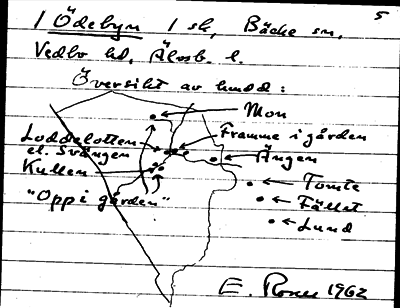 5
1 Ödebyn 1 sk, Bäcke sn,
Vedbo hd, Älvsb. l.
Översikt av hmdd:
Mon
Loddelotten
el. Svängen
Framme i gården
Ängen
Kullen
Tomte
"Opp i gården"
Fället
Lund
E. 1962